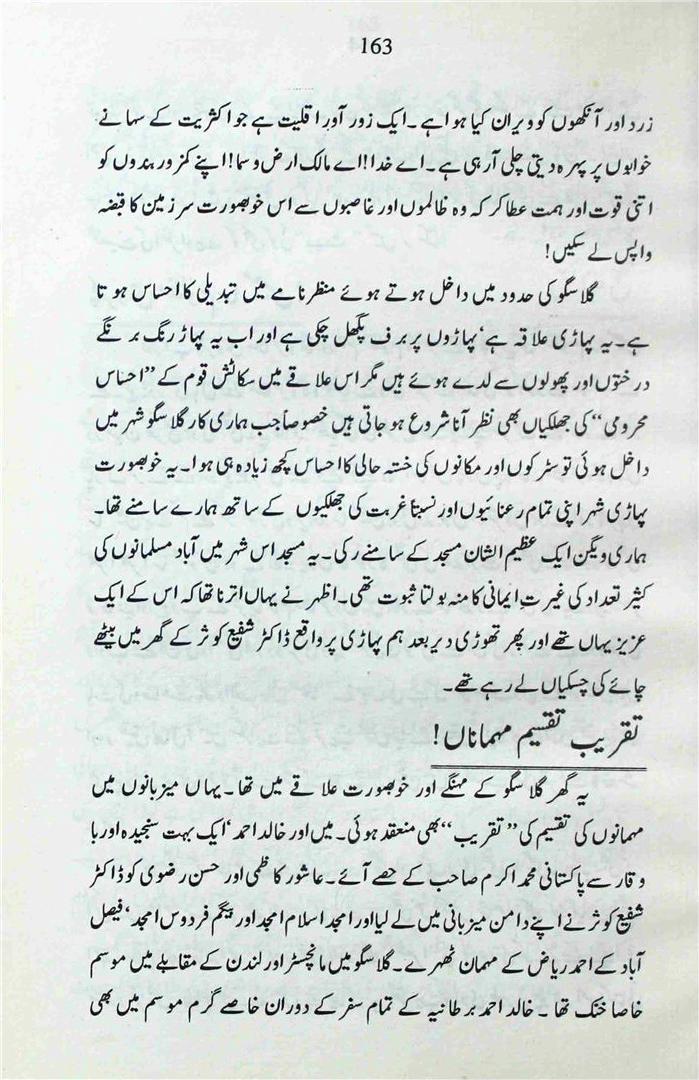 163
زرد اور آنکھوں کو ویران کیا ہوا ہے ۔ ایک زور آور اقلیت ہے جو اکثریت کے سہانے
خوابوں پر پہرہ دیتی چلی آ رہی ہے ۔ اے خدا! اے مالک ارض و سما! اپنے کمزور بندوں کو
اتنی قوت اور ہمت عطا کر کہ وہ ظالموں اور غاصبوں سے اس خوبصورت سرزمین کا قبضہ
واپس لے سکیں!
گلاسگو کی حدود میں داخل ہوتے ہوئے منظر نامے میں تبدیلی کا احساس ہوتا
ہے۔ یہ پہاڑی علاقہ ہے‘ پہاڑوں پر برف پگھل چکی ہے اور اب یہ پہاڑ رنگ برنگے
درختوں اور پھولوں سے لدے ہوئے ہیں مگر اس علاقے میں سکاٹش قوم کے ’’احساس
محرومی‘‘ کی جھلکیاں بھی نظر آنا شروع ہو جاتی ہیں خصوصاً جب ہماری کار گلاسگو شہر میں
داخل ہوئی تو سڑکوں اور مکانوں کی خستہ حالی کا احساس کچھ زیادہ ہی ہوا۔ یہ خوبصورت
پہاڑی شہر اپنی تمام رعنائیوں اور نسبتاً غربت کی جھلکیوں کے ساتھ ہمارے سامنے تھا۔
ہماری ویگن ایک عظیم الشان مسجد کے سامنے رکی۔ یہ مسجد اس شہر میں آباد مسلمانوں کی
کثیر تعداد کی غیرتِ ایمانی کا منہ بولتا ثبوت تھی۔ اظہر نے یہاں اترنا تھا کہ اس کے ایک
عزیز یہاں تھے اور پھر تھوڑی دیر بعد ہم پہاڑی پر واقع ڈاکٹر شفیع کوثر کے گھر میں بیٹھے
چائے کی چسکیاں لے رہے تھے۔
تقریب تقسیم مہماناں!
یہ گھر گلاسگو کے مہنگے اور خوبصورت علاقے میں تھا۔ یہاں میزبانوں میں
مہمانوں کی تقسیم کی ’’تقریب‘‘ بھی منعقد ہوئی۔ میں اور خالد احمد‘ ایک بہت سنجیدہ اور با
وقار سے پاکستانی محمد اکرم صاحب کے حصے آئے۔ عاشور کاظمی اور حسن رضوی کو ڈاکٹر
شفیع کوثر نے اپنے دامن میزبانی میں لے لیا اور امجد اسلام امجد اور بیگم فردوس امجد‘ فیصل
آباد کے احمد ریاض کے مہمان ٹھہرے۔ گلاسگو میں مانچسٹر اور لندن کے مقابلے میں موسم
خاصا خنک تھا ۔ خالد احمد برطانیہ کے تمام سفر کے دوران خاصے گرم موسم میں بھی